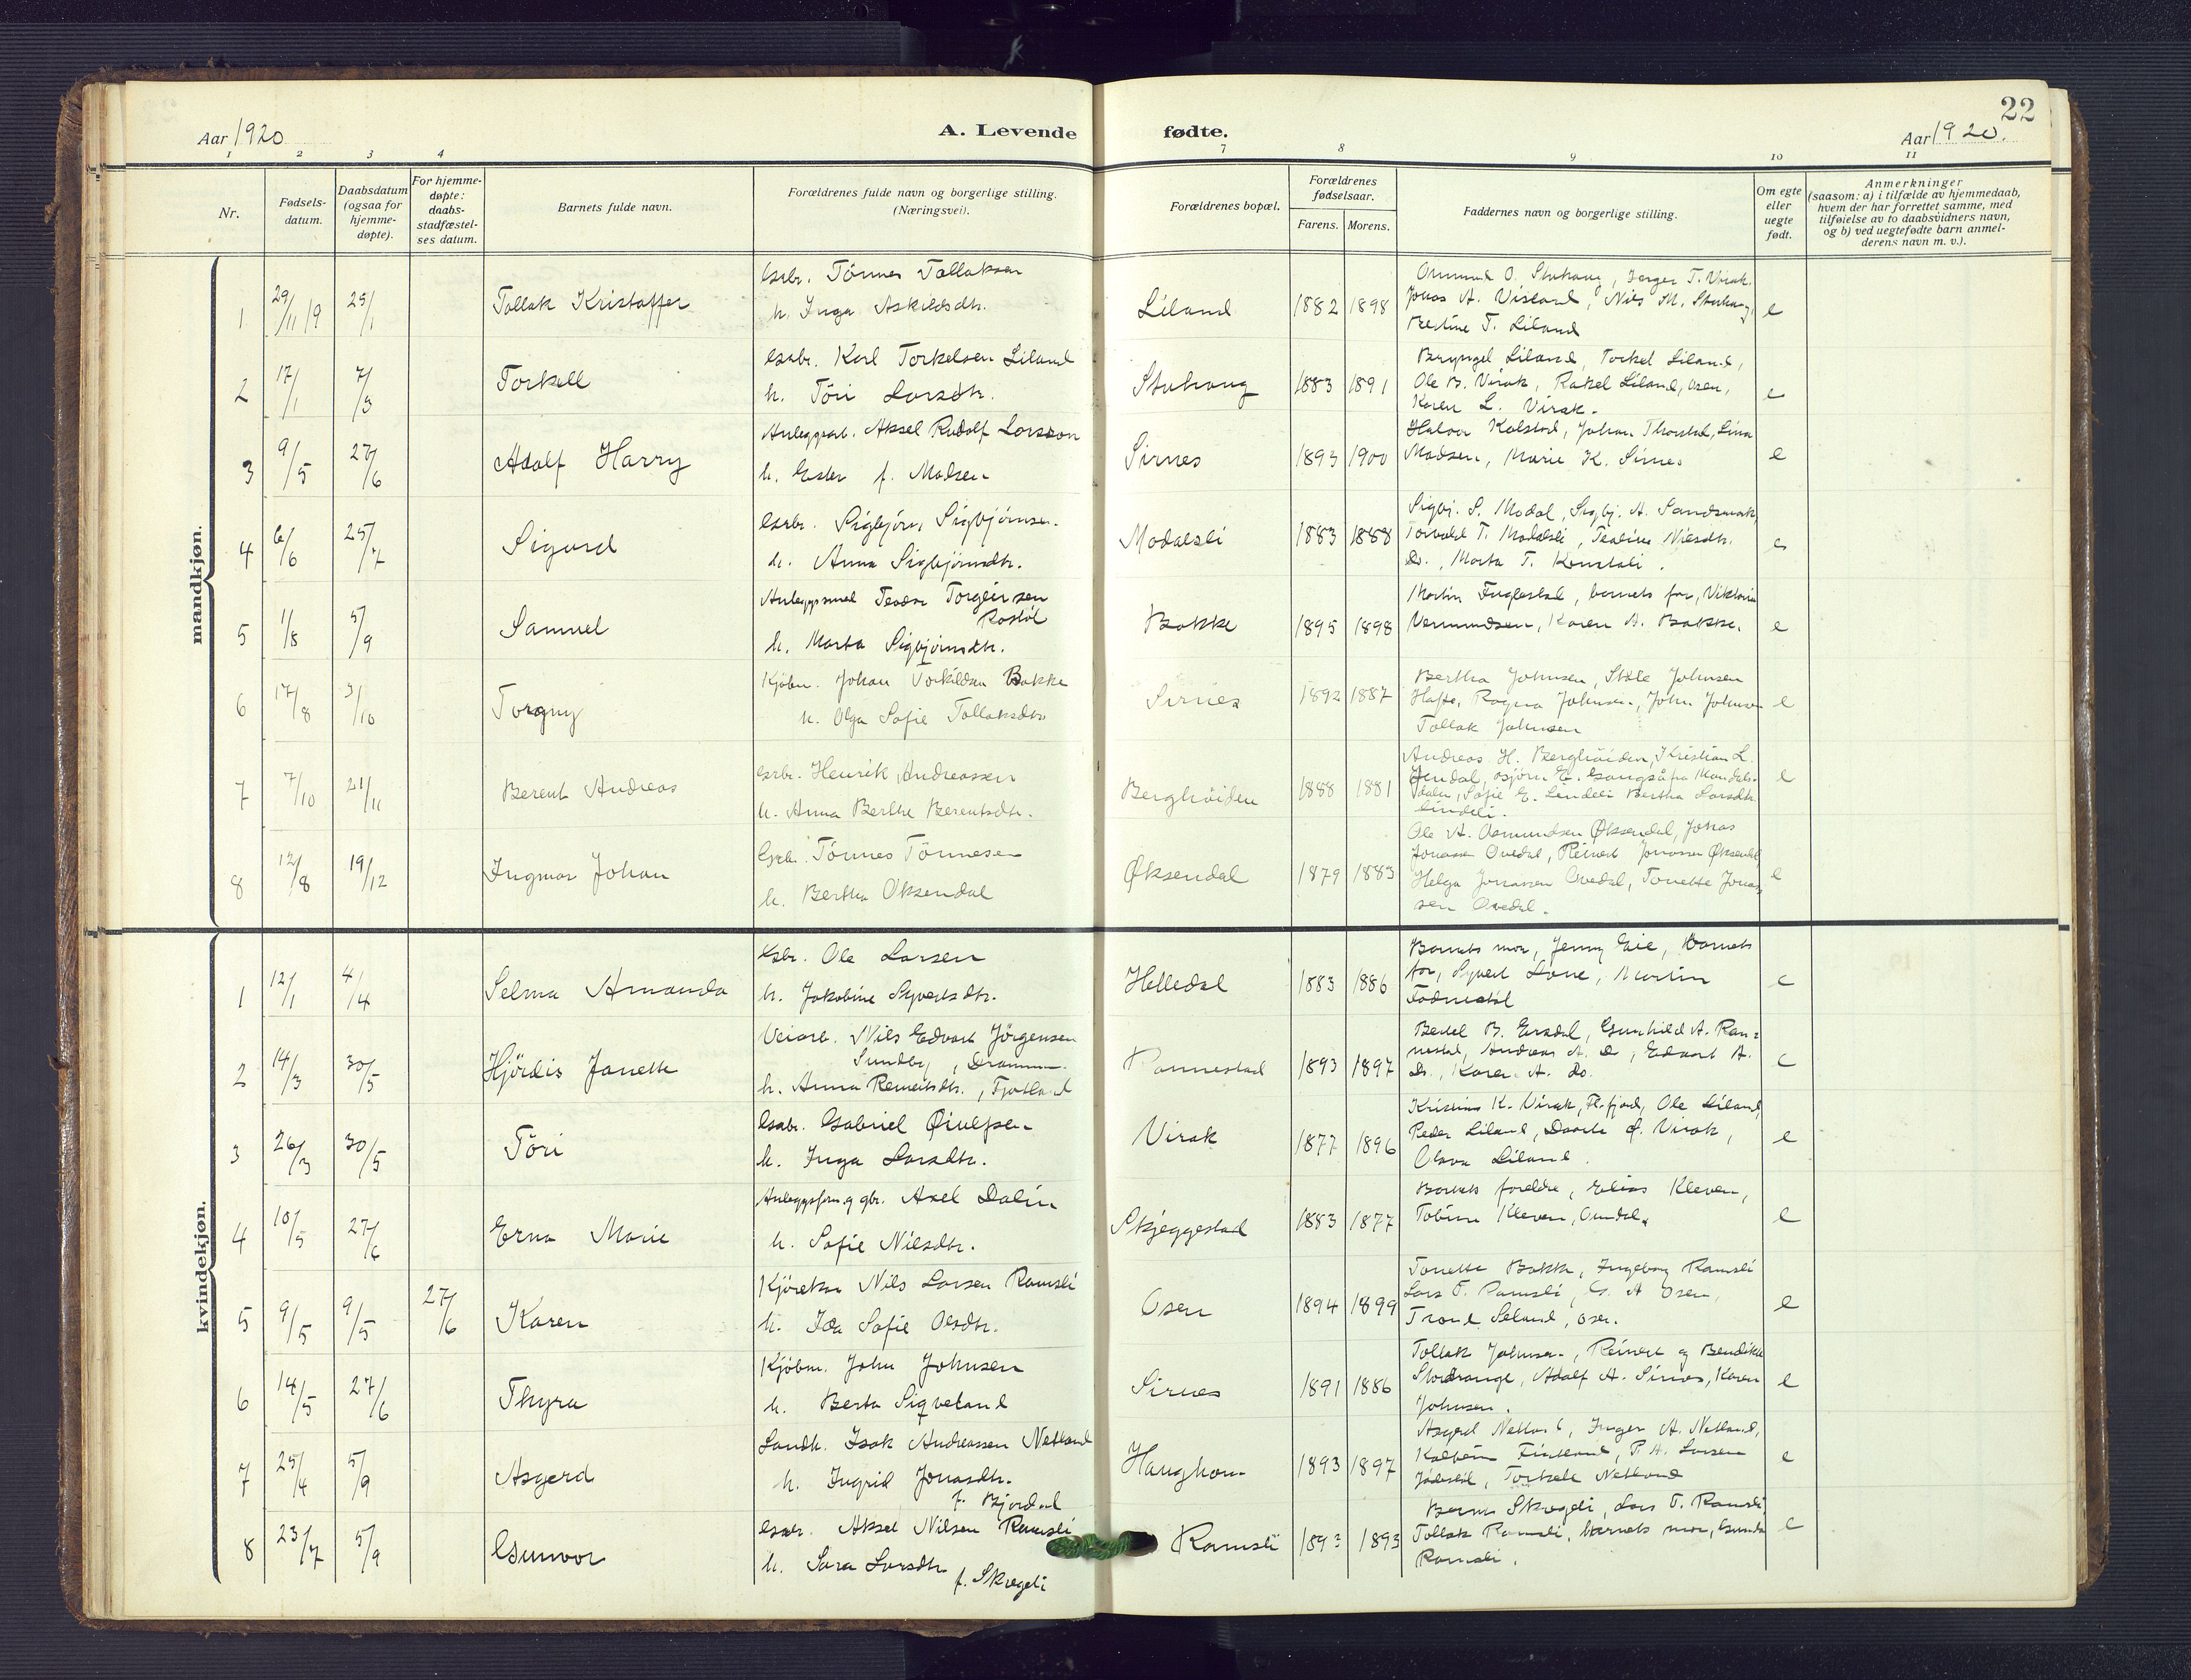 22
Aar 1920
A. Levende fødte.
Aar 1920.
1 2 3 4 7 8 9 10 11
Nr.
Fødsels-
datum.
Daabsdatum
(ogsaa for
hjemme-
døpte).
For hjemme-
døpte:
daabs-
stadfæstel-
ses datum.
Barnets fulde navn.
Forældrenes fulde navn og borgerlige stilling.
(Næringsvei).
Forældrenes bopæl.
Forældrenes
fødselsaar.
Farens. Morens.
Faddernes navn og borgerlige stilling.
Om egte
eller
uegte
født.
Anmerkninger
(saasom: a) i tilfælde av hjemmedaab,
hvem der har forrettet samme, med
tilføielse av to daabsvidners navn,
og b) ved uegtefødte barn anmel-
derens navn m. v.).
mandkjøn.
1 29/11 19 25/1 Tollak Kristoffer
Gsbr. Tönnes Tollaksen
h. Inga Askildsdtr.
Liland 1882 1898
Jonas A. Visland, Nils M. Stuhaug,
Bertine T. Liland
e
2 17/1 7/3 Torkell
Gsbr. Karl Torkelsen Liland
h. Töri Larsdtr.
Stuhaug 1883 1891
Bryngel Liland, Torkel Liland,
Ole B. Virak, Rakel Liland, Osen,
Karen L. Virak.
e
3 9/5 27/6 Adolf Harry
Anleggsarb. Aksel Rudolf Larsson
h. Ester f. Madsen
Sirnes 1893 1900
Halvor Kalstad, Johan Thorstad, Lina
Madsen, Marie K. Sirnes
e
4 6/6 25/7 Sigurd
Gsbr. Sigbjörn Sigbjörnsen.
h. Anna Sigbjörnsdtr.
Modalsli 1883 1888
Sigbj. S. Modal, Sigbj. A. Sandsmark,
Torvald T. Modalsli, Teoline Nilsdtr.
Do., Marta T. Konstali.
e
5 1/8 5/9 Samuel
Anleggssmed Teodor Torgeirsen
Rostöl
h. Marta Sigbjörnsdtr.
Bakke 1895 1898
Martin Fuglestad, barnets far, Viktoria
Vermundsen, Karen A. Bakke.
e
6 17/8 3/10 Torgny
Kjöbm. Johan Torkildsen Bakke
h. Olga Sofie Tollaksdtr
Sirnes 1892 1887
Bertha Johnsen, Ståle Johnsen
Hafte, Ragna Johnsen, John Johnsen
Tollak Johnsen
e
7 7/10 21/11 Berent Andreas
Gsbr. Henrik Andreassen
h. Anna Berthe Berentsdtr.
Berghöiden 1888 1881
Andreas H. Berghöiden, Kristian L.
dalen, Sofie E. Lindeli Bertha Larsdtr.
Lindeli.
e
8 12/8 19/12 Ingmar Johan
Gsbr. Tönnes Tönnesen
h. Bertha Oksendal
Øksendal 1879 1883
Ole A. Osmundsen Øksendal, Jonas
Jonassen Ovedal, Reinert Jonassen Øksendal
Helga Jonassen Ovedal, Tonette Jonas-
sen Ovedal.
e
kvindekjøn.
1 12/1 4/4 Selma Amanda
Gsbr. Ole Larsen
h. Jakobine Syvertsdtr.
Helledal 1883 1886
Barnets mor, Jenny Eie, Barnets
far, Syvert Lone, Martin
e
2 14/3 30/5 Hjördis Janette
Veiarb. Nils Edvart Jörgensen
Sundby, Drammen.
h. Anna Reinertsdtr., Fjotland
Rannestad 1893 1897
Bertel B. Ersdal, Gunhild A. Ran-
nestad, Andreas A. do, Edvart A.
Do., Karen A. do.
e
3 26/3 30/5 Töri
Gsbr. Gabriel Ørulfsen
h. Inga Larsdtr.
Virak 1877 1896
Kristine K. Virak, Fl.fjord, Ole Liland,
Peder Liland, Dorte G. Virak,
Olava Liland.
e
4 10/5 27/6 Erna Marie
Anleggsform. og gbr. Axel Dalin
h. Sofie Nilsdtr.
Skjeggestad 1883 1877
Barnets foreldre, Elias Kleven,
Tobine Kleven, Ovedal.
e
5 9/5 9/5 27/6 Karen
Kjörekar Nils Larsen Ramsli
h. Ida Sofie Olsdtr.
Osen 1894 1899
Tonette Bakke, Ingeborg Ramsli
Lars T. Ramsli, G. A. Osen,
Trond Seland, Osen.
e
6 14/5 27/6 Thyra
Kjöbm. John Johnsen
h. Berta Siqveland
Sirnes 1891 1886
Tollak Johnsen, Reinert og Bendikte
Stordrange, Adolf A. Sirnes, Karen
Johnsen.
e
7 25/4 5/9 Asgerd
Landh. Isak Andreassen Netland
h. Ingrid Jonasdtr.
f. Bjordal
Haughom 1893 1897
Asgerd Netland, Inger A. Netland,
Kolbein Finland, P. A. Larsen
Jödestöl, Torkell Netland
e
8 23/7 5/9 Gunvor
Gsbr. Aksel Nilsen Ramsli
h. Sara Larsdtr f. Skregeli
Ramsli 1893 1893
Berna Skregeli, Lars T. Ramsli
Tollak Ramsli, barnets mor, Gunda
Ramsli.
e